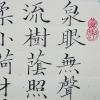 泉眼無聲
流樹蔭照
柔小荷才